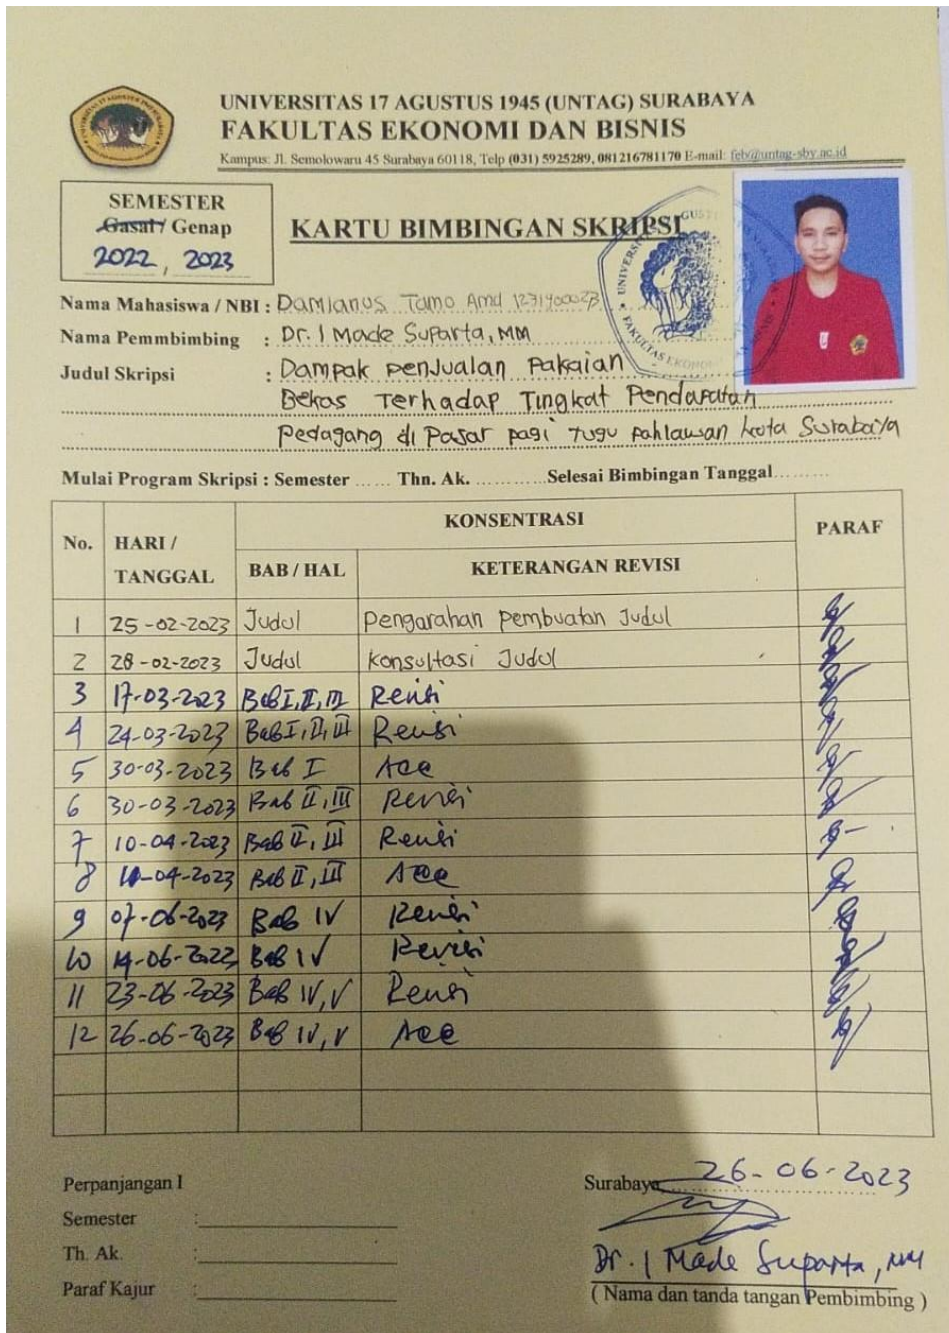 UNIVERSITAS 17 AGUSTUS 1945 (UNTAG) SURABAYA
FAKULTAS EKONOMI DAN BISNIS
Kampus: Jl. Semolowaru 45 Surabaya 60118, Telp (031) 5925289, 081216781170 E-mail: feb@untag-sby.ac.id
SEMESTER
Gasal / Genap
2022, 2023
KARTU BIMBINGAN SKRIPSI
Nama Mahasiswa / NBI : Damianus Tamo Amd 1231900023
Nama Pemmbimbing : Dr. I Made Suparta, MM
Judul Skripsi : Dampak penjualan Pakaian
Bekas Terhadap Tingkat Pendapatan
Pedagang di Pasar pagi Tugu pahlawan kota Surabaya
Mulai Program Skripsi : Semester ...... Thn. Ak. ............ Selesai Bimbingan Tanggal.........
No. HARI / TANGGAL KONSENTRASI PARAF
BAB / HAL KETERANGAN REVISI
1 25-02-2023 Judul Pengarahan Pembuatan Judul
2 28-02-2023 Judul Konsultasi Judul
3 17-03-2023 Bab I, II, III Revisi
4 24-03-2023 Bab I, II, III Revisi
5 30-03-2023 Bab I Acc
6 30-03-2023 Bab II, III Revisi
7 10-04-2023 Bab II, III Revisi
8 -04-2023 Bab II, III Acc
9 07-06-2023 Bab IV Revisi
10 14-06-2023 Bab IV Revisi
11 23-06-2023 Bab IV, V Revisi
12 26-06-2023 Bab IV, V Acc
Perpanjangan I
Semester :
Th. Ak. :
Paraf Kajur :
Surabaya, 26-06-2023
Dr. I Made Suparta, MM
( Nama dan tanda tangan Pembimbing )